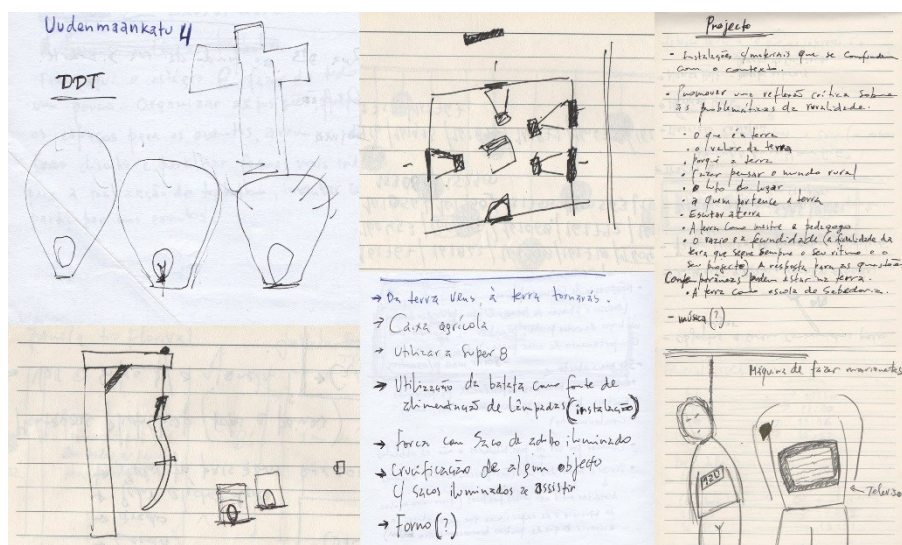 Uudenmaankatu 4
DDT
→ Da terra véns, à terra tornarás.
→ Caixa agrícola
→ Utilizar a Super 8
→ Utilização da batata como fonte de
alimentação de lâmpadas (instalação)
→ Forca com Saco de adobo iluminado
→ Crucificação de algum objecto
c/ sacos iluminados a assistir
→ Forno (?)
Projecto
- Instalações c/ materiais que se confundem
com o contexto.
- Promover uma reflexão crítica sobre
as problemáticas da ruralidade.
• O que é a terra
• o valor da terra
• Porquê a terra
• Fazer pensar o mundo rural
• O luto do lugar
• a quem pertence a terra
• Escutar a terra
• A terra como mestre e pedagogo
• O vazio e a fecundidade (a fidelidade da
terra que segue sempre o seu ritmo e o
seu projecto) A resposta para as questões
Contemporâneas podem estar na terra.
• A terra como escola de Sabedoria.
- música (?)
Máquina de fazer marionetas